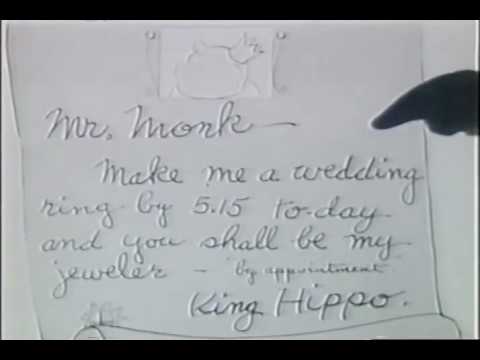 Mr. Monk—
Make me a wedding
ring by 5.15 to-day
and you shall be my
jeweler - "by appointment"
King Hippo.